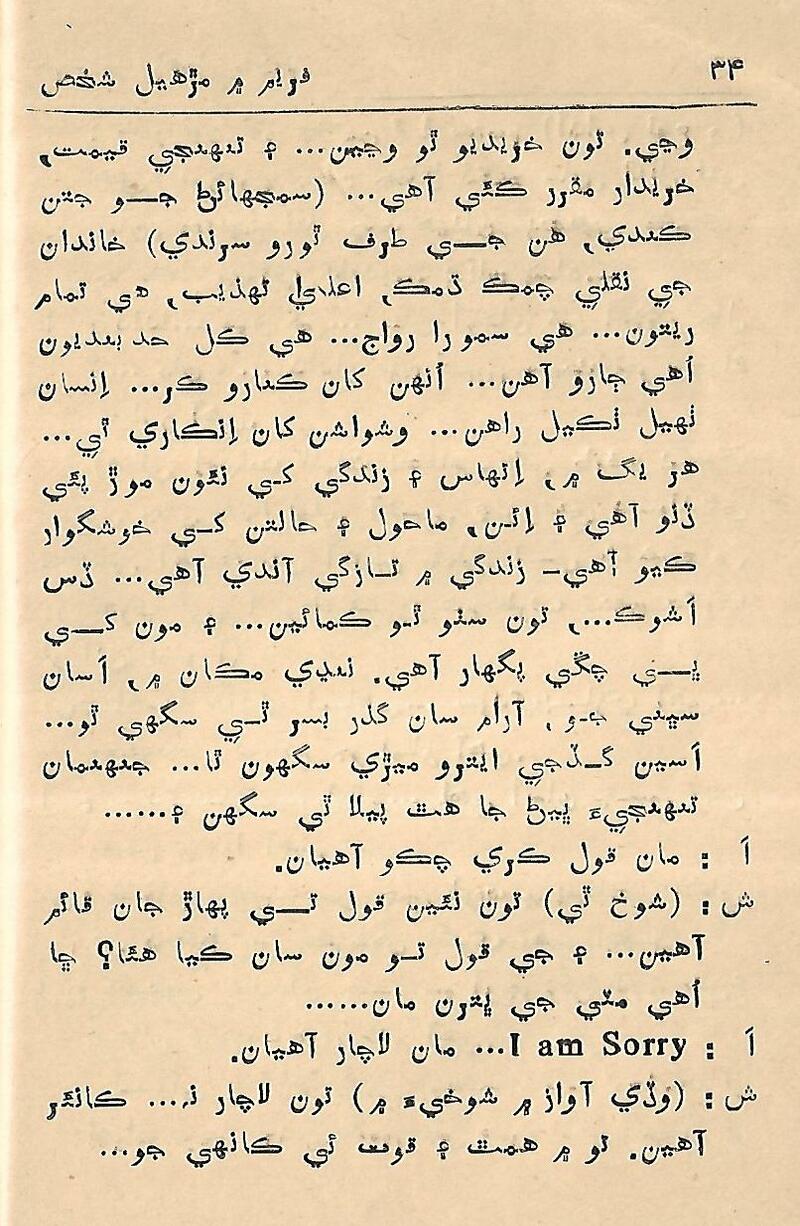 ۳۴
فريم ۾ مڙهيل شخص
وڃي. تون خريديو ٿو وڃين... ۽ تنهنجي قيمت,
خريدار مقرر ڪئي آهي... (سمجهائڻ جـــو جتن
ڪندي, هن جـــي طرف ٿورو سرندي) خاندان
جي نقلي چمڪ ڌمڪ, اعليٰ تهذيب, هي تمام
ريتون... هي سمورا رواج... هي ڪل حد بنديون
اُهي ڄارو آهن... اُنهن کان ڪنارو ڪر... اِنسان
ٺهيل ٺڪيل راهن... وشواشن کان اِنڪاري ٿي...
هر يگ ۾, اِتهاس ۽ زندگي کـي نئون موڙ پئي
ڏنو آهي ۽ اِئـن, ماحول ۽ حالتن کــي خوشگوار
ڪيو آهي- زندگي ۾ تــازگي آندي آهي... ڏس
اَشوڪ..., تون سٺو ٿـو ڪمائين... ۽ مون کـــي
ڀـــي چڱي پگهار آهي. ننڍي مڪان ۾, اَسان
سڀني جـو, آرام سان گذر بسر ٿــي سگهي ٿو...
اَسين گــڏجي ايترو ميڙي سگهون ٿا... جنهنمان
تنهنجيءَ ڀيڻ جا هٿ پيلا ٿي سگهن ۽......
اَ : مان قول ڪري چڪو آهيان.
ش : (شوخ ٿي) تون نئين قول تـــي پهاڙ جان قائم
آهين... ۽ جي قول تــو مون سان ڪيا هئا؟ ڇا
اُهي مٽي جي ڀترن مان......
اَ : I am Sorry... مان لاچار آهيان.
ش : (وڏي آواز ۾ شوخيءَ ۾) تون لاچار نه... ڪائنر
آهين. تو ۾ همت ۽ قوت ئي ڪانهي جو...